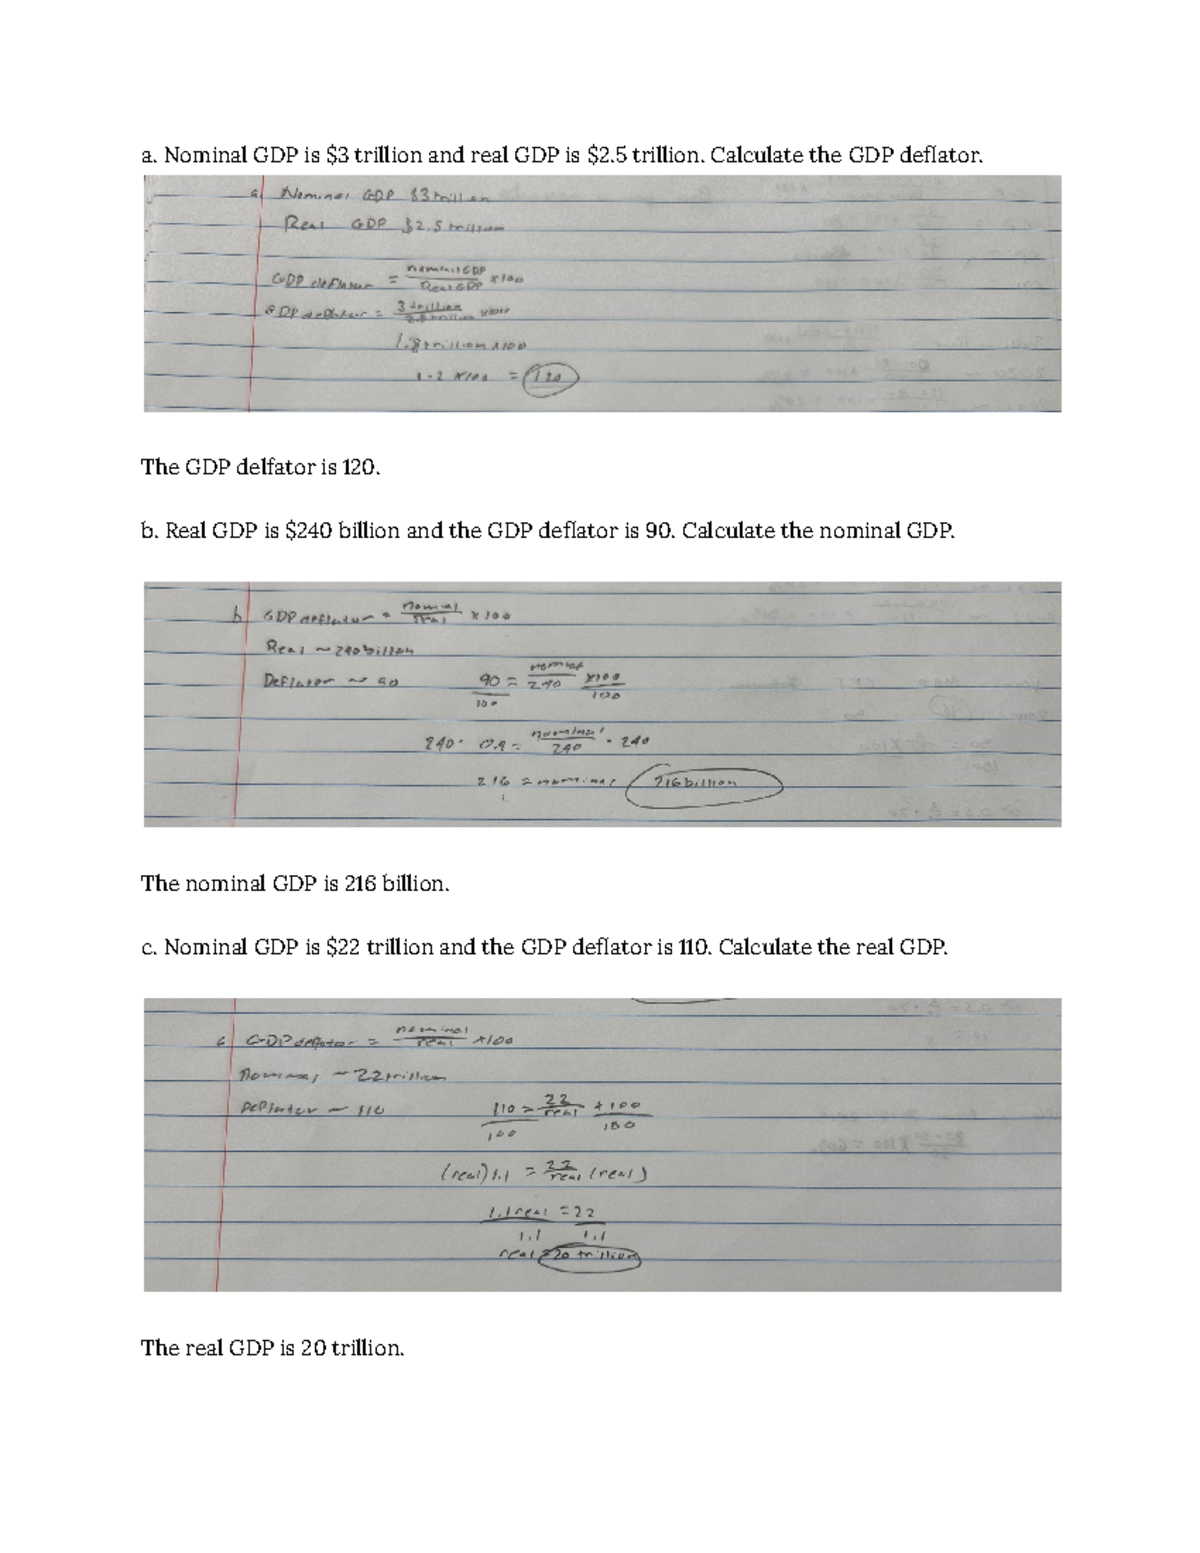 a. Nominal GDP is $3 trillion and real GDP is $2.5 trillion. Calculate the GDP deflator.
a Nominal GDP $3 trillion
Real GDP $2.5 trillion
GDP deflator = nominal GDP / Real GDP x100
GDP deflator = 3 trillion / 2.5 trillion x100
trillion x100
1.2 x100 = 120
The GDP delfator is 120.
b. Real GDP is $240 billion and the GDP deflator is 90. Calculate the nominal GDP.
b GDP deflator = nomial / real x100
Real ~ 240 billion
Deflator ~ 90 90/100 = nominal/240 x100/100
240 · 0.9 = nominal/240 · 240
216 = nominal 216 billion
The nominal GDP is 216 billion.
c. Nominal GDP is $22 trillion and the GDP deflator is 110. Calculate the real GDP.
c GDP deflator = nominal / real x100
Nominal ~ 22 trillion
Deflator ~ 110 110/100 = 22/real x100/100
(real) 1.1 = 22/real (real)
1.1 real / 1.1 = 22 / 1.1
real = 20 trillion
The real GDP is 20 trillion.